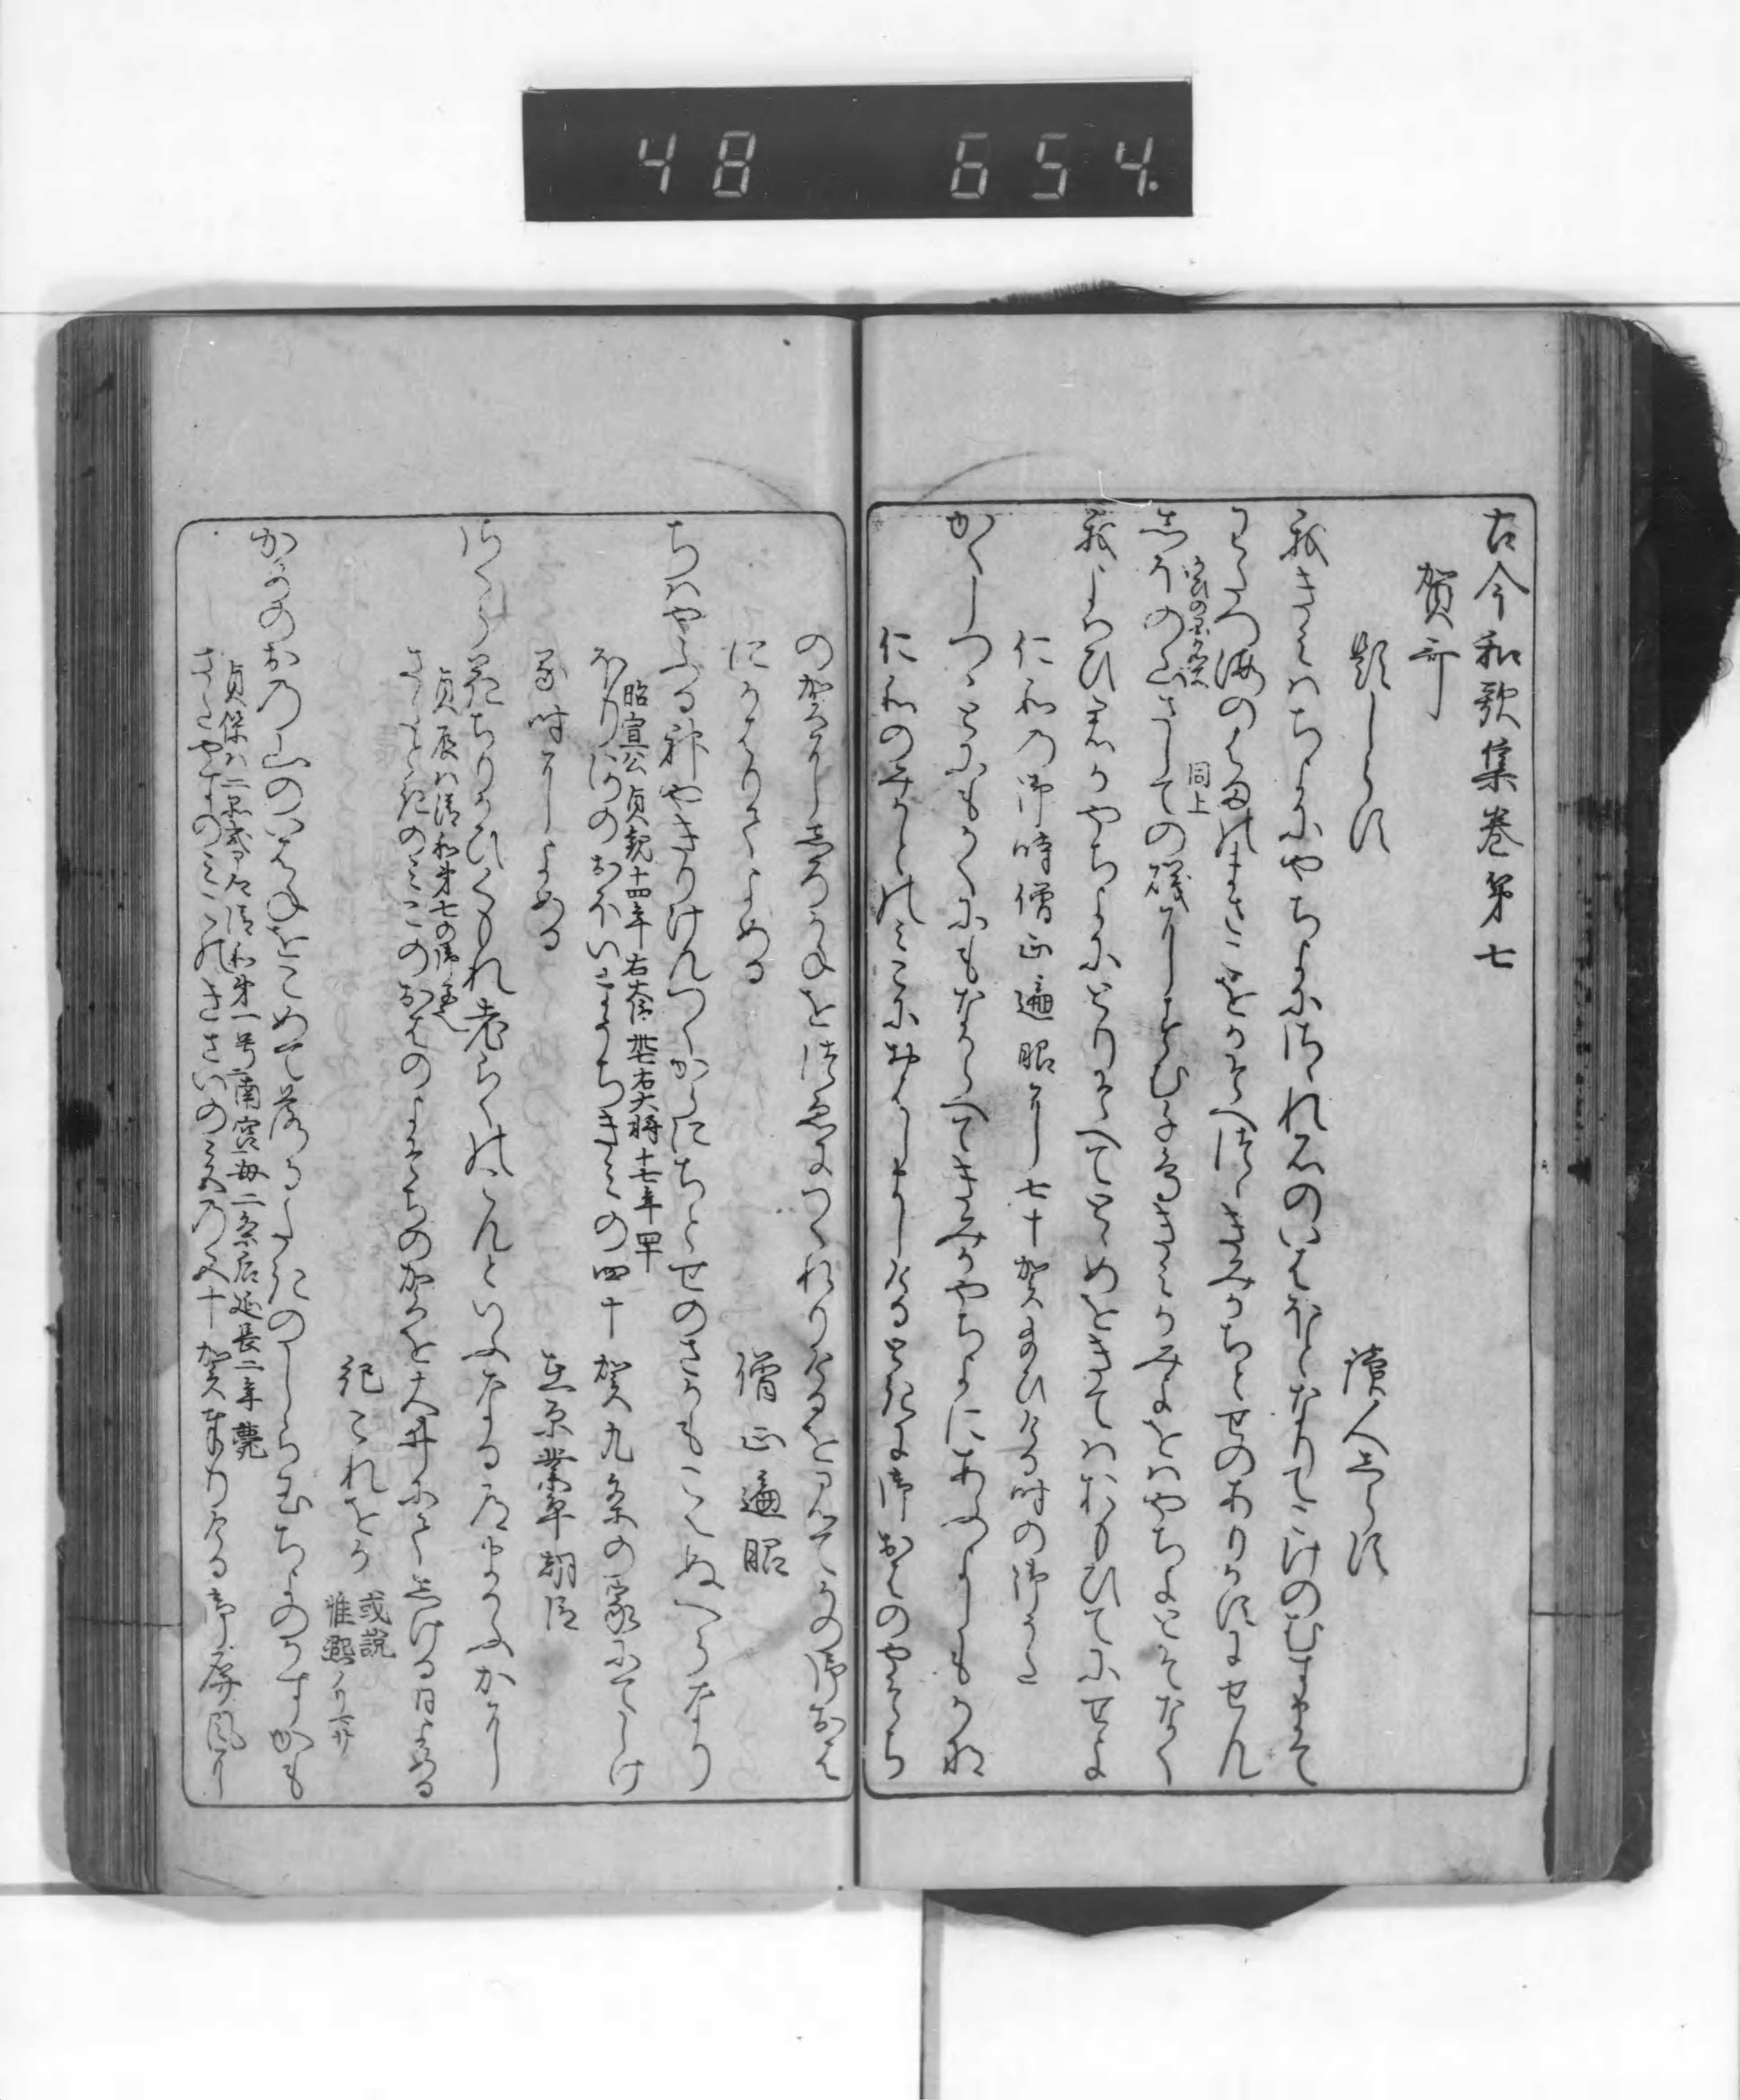 48 654.
古今和歌集巻第七
賀哥
題しらす 讀人しらす
我きみはちよにやちよにさゝれ石のいはほとなりてこけのむすまて
わたつ海のはまのまさこをかそへつゝきみかちとせのありかすにせん
しほの山さしての磯にすむ千鳥きみかみよをはやちよとそなく
同上
我よはひ君かやちよにとりそへてとゝめをきてはおもひてにせよ
仁和乃御時僧正遍昭に七十賀給ひける時の御うた
かくしつゝとにもかくにもなからへてきみかやちよにあふよしもかな
仁和のみかとのみこにおはしましける時に御おはのやそち
の賀にしろかねを杖につくれりけるを見てかの御おは
にかはりてよめる 僧正遍昭
ちはやふる神やきりけんつくからにちとせのさかもこえぬへらなり
昭宣公 貞観十四年右大臣 卅七右大将 十七年四十
ほりかはのおほいまうちきみの四十賀九条の家にてしけ
る時によめる 在原業平朝臣
さくら花ちりかひくもれ老らくのこんといふなる道まかふかに
貞辰は清和第七の御子也
さたときのみこのおはのよそちの賀を大井にてしける日よめる
紀これをか 或説惟熈
かめのおの山のいはねをとめて落るたきのしら玉ちよのかすかも
貞保は二品式部卿清和第一号南宮母二条后延長二年薨
さたやすのみこのきさいの宮の五十賀奉りける御屏風に